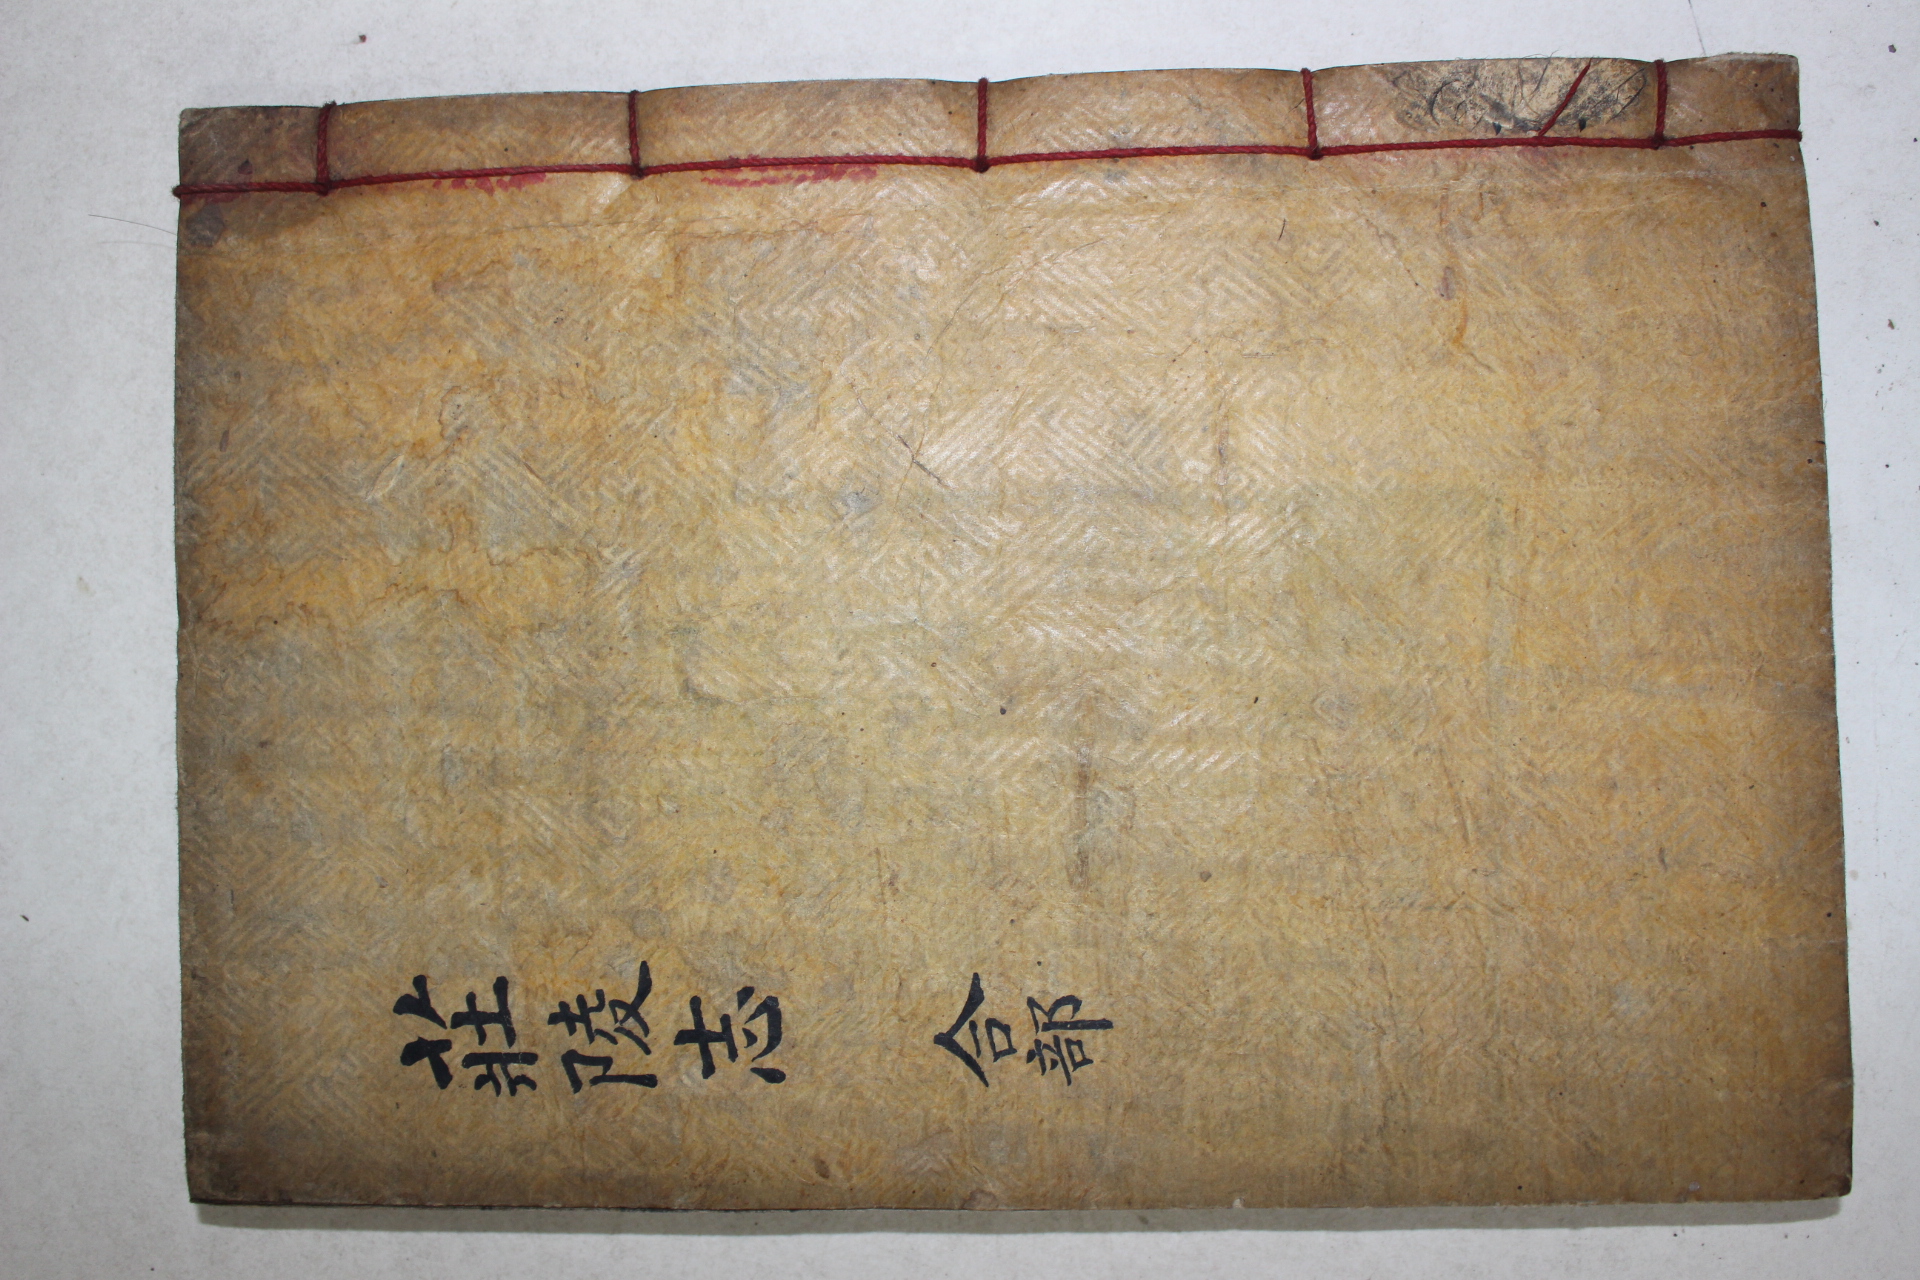 莊陵志 合部